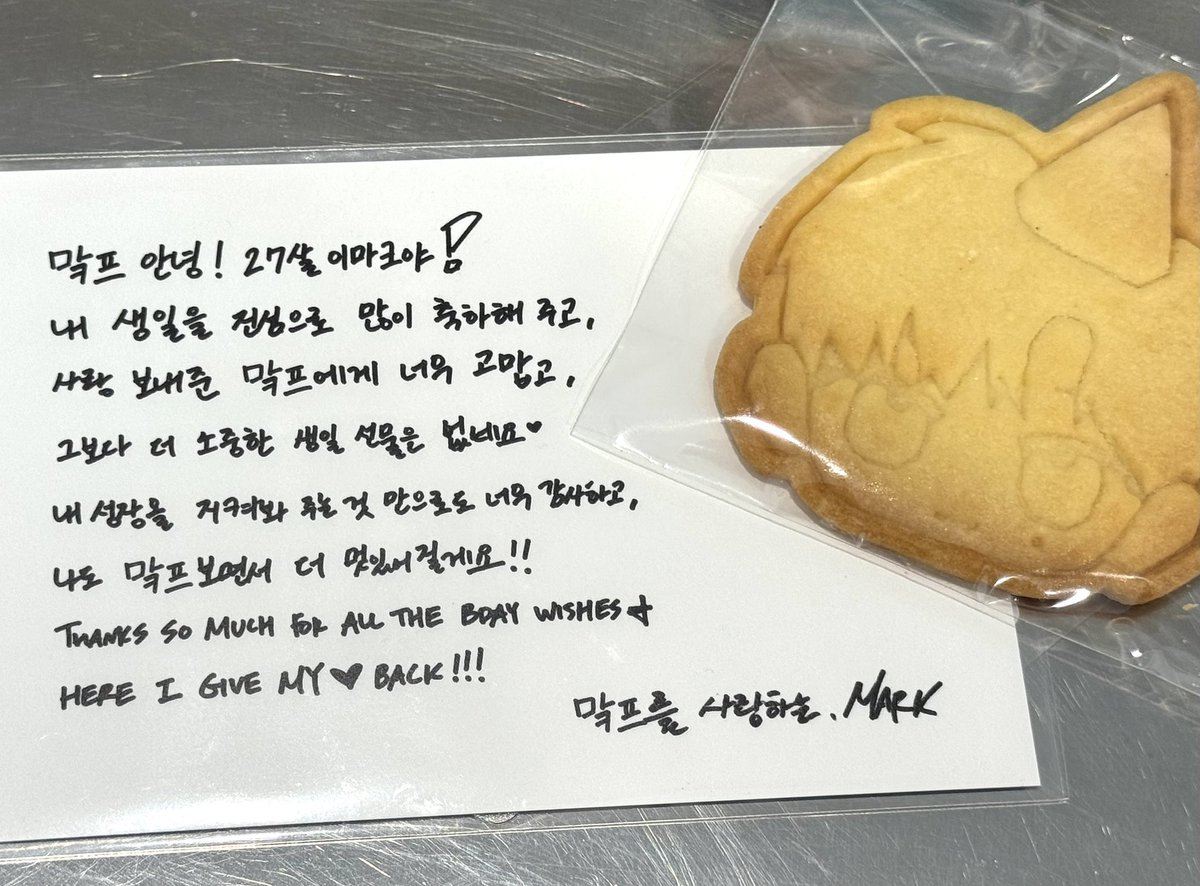 막프 안녕! 27살 이마크야!
내 생일을 진심으로 많이 축하해 주고,
사랑 보내준 막프에게 너무 고맙고,
그보다 더 소중한 생일 선물은 없네요♥
내 성장을 지켜봐 주는 것 만으로도 너무 감사하고,
나도 막프보면서 더 멋있어질게요!!
THANKS SO MUCH FOR ALL THE BDAY WISHES &
HERE I GIVE MY ♥ BACK!!!
막프를 사랑하는, MARK